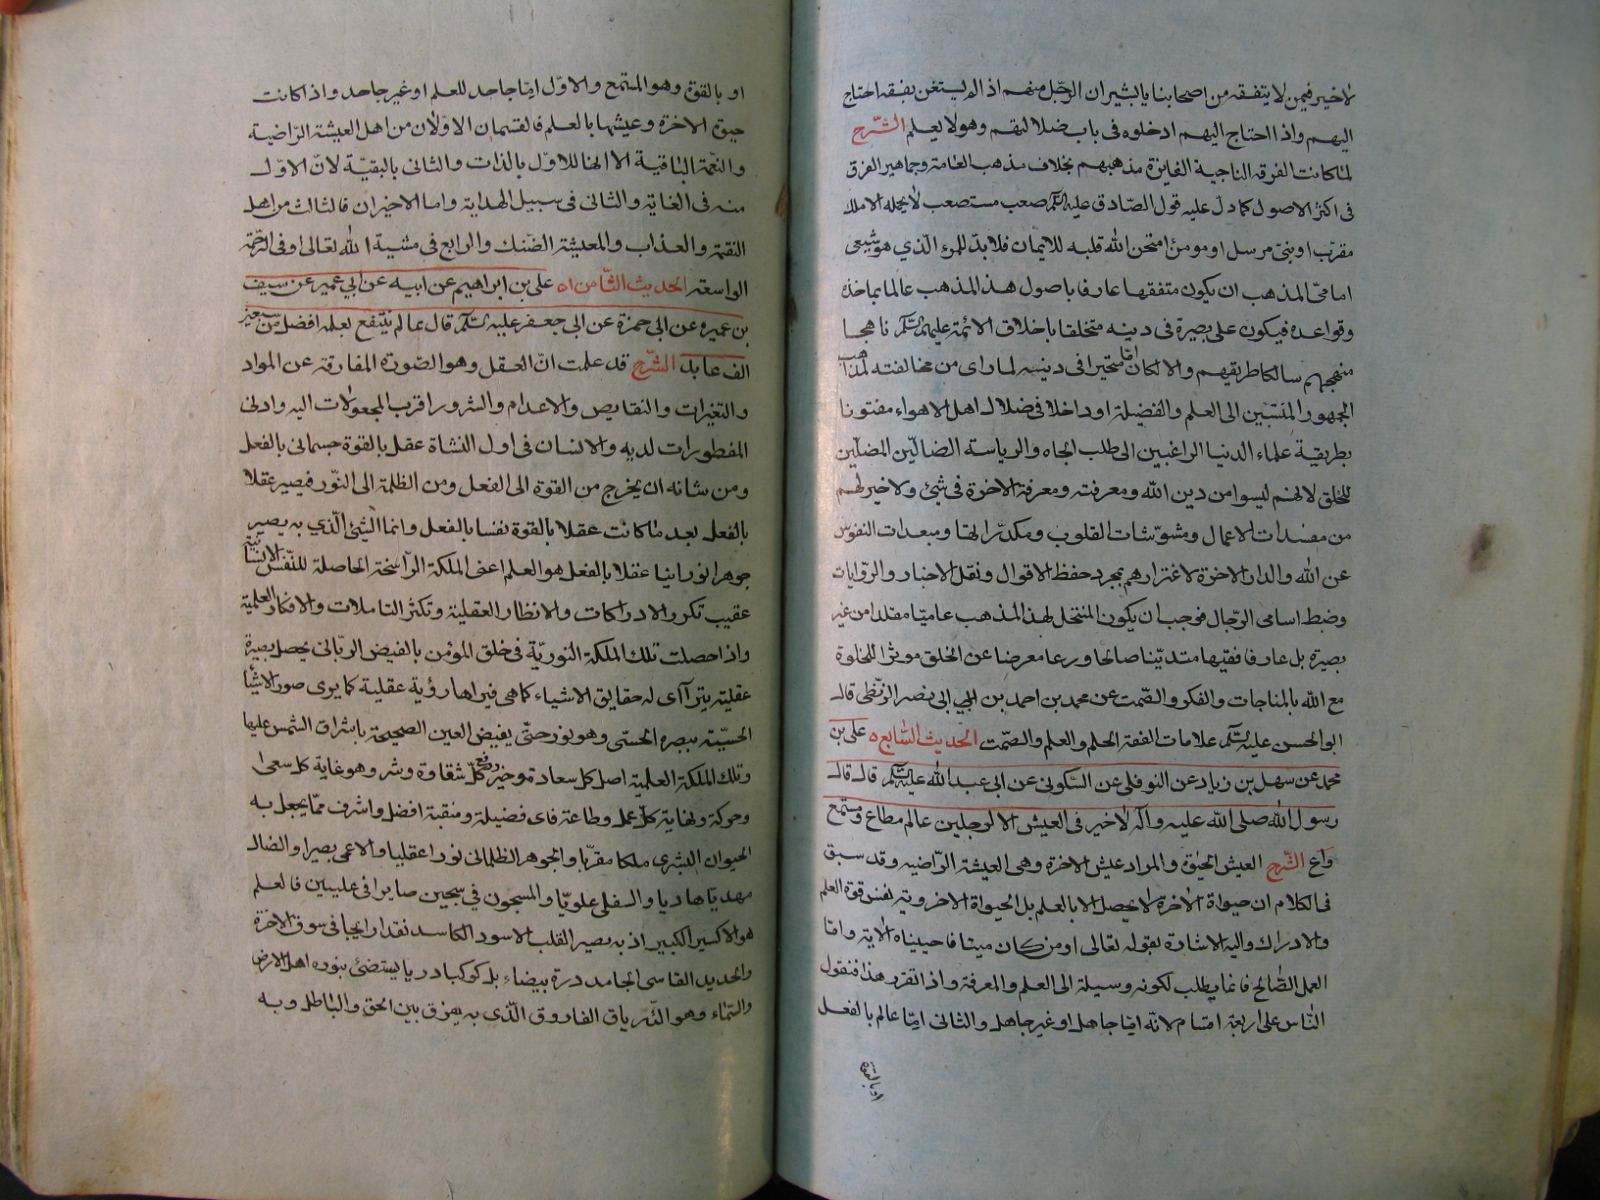 لاخير فيمن لا يتفقه من اصحابنا يا بشير ان الرجل منهم اذا لم يستغن بفقهه احتاج
اليهم واذا احتاج اليهم ادخلوه فى باب ضلالتهم وهو لا يعلم الشرح
لما كانت الفرقه الناجية الفايزة مذهبهم بخلاف مذهب العامة وجماهير الفرق
فى اكثر الاصول كما دل عليه قول الصادق عليه السلم صعب مستصعب لا يحمله الا ملك
مقرب او نبى مرسل او مومن امتحن الله قلبه للايمان فلا بد للمرء الذي هو شيعى
امامى المذهب ان يكون متفقها عارفا باصول هذا المذهب عالما بماخذه
وقواعده فيكون على بصيرة فى دينه متخلقا باخلاق الائمة عليهم السلم ناهجا
منهجهم سالكا طريقهم والا لكان اما متحيرا فى دينه لما راى من مخالفته لمذاهب
الجمهور المنتسبين الى العلم والفضيلة او داخلا فى ضلال اهل الاهواء مفتونا
بطريقة علماء الدنيا الراغبين الى طلب الجاه والرياسة الضالين المضلين
للخلق لانهم ليسوا من دين الله ومعرفته ومعرفة الاخرة فى شئ ولا خير لهم
من مفسدات الاعمال ومشوشات القلوب ومكدراتها ومبعدات النفوس
عن الله والدار الاخرة لاغترارهم بمجرد حفظ الاقوال ونقل الاخبار والروايات
وضبط اسامى الرجال فوجب ان يكون المنتحل لهذا المذهب عاميا مقلدا من غير
بصيرة بل عارفا فقيها متدينا صالحا ورعا معرضا عن الخلق موثرا للخلوة
مع الله بالمناجات والفكر والصمت عن محمد بن احمد بن ابى نصر البزنطى قال
ابو الحسن عليه السلم علامات الفقه الحلم والعلم والصمت الحديث السابع على بن
محمد عن سهل بن زياد عن النوفلى عن السكونى عن ابى عبد الله عليه السلم قال قال
رسول الله صلى الله عليه وآله لا خير فى العيش الا لرجلين عالم مطاع ومستمع
واع الشرح العيش الحيوة والمراد عيش الاخرة وهى العيشة الراضيه وقد سبق
فى الكلام ان حيواة الاخرة لا يحصل الا بالعلم بل الحيواة الاخروية نفس قوة العلم
والادراك واليه الاشارة بقوله تعالى اومن كان ميتا فاحييناه الاية واما
العمل الصالح فانما يطلب لكونه وسيلة الى العلم والمعرفة واذا تقرر هذا فنقول
الناس على اربعة اقسام لانه اما جاهل او غير جاهل والثانى اما عالم بالفعل
او بالقوة
او بالقوة وهو المتمع والاول اما جاحد للعلم او غير جاحد واذ اكانت
حيوة الاخرة وعيشها بالعلم فالقسمان الاولان من اهل العيشة الراضية
والنعمة الباقية الا انها للاول بالذات والثانى بالبقية لان الاول
منه فى الغاية والثانى فى سبيل الهداية واما الاخيران فالثالث من اهل
النقمة والعذاب والمعيشة الضنك والرابع فى مشية الله تعالى او فى الرحمة
الواسعة الحديث الثامن على بن ابراهيم عن ابيه عن ابي عمير عن سيف
بن عميره عن ابى حمزة عن ابى جعفر عليه السلم قال عالم ينتفع بعلمه افضل من سبعين
الف عابد الشرح قد علمت ان العقل وهو الصورة المفارقة عن المواد
والتغيرات والنقايص والاعدام والشرور اقرب المجعولات اليه وادنى
المفطورات لديه والانسان فى اول النشاة عقل بالقوة جسمانى بالفعل
ومن شانه ان يخرج من القوة الى الفعل ومن الظلمة الى النور فيصير عقلا
بالفعل بعد ما كانت عقلا بالقوة نفسا بالفعل وانما الشئ الذي به يصير
جوهرا نورانيا عقلا بالفعل هو العلم اعنى الملكة الراسخة الحاصلة للنفس الانسانية
عقيب تكرر الادراكات والانظار العقلية وتكثر التاملات والافكار العلمية
واذا حصلت تلك الملكة النورية فى خلق المؤمن بالفيض الربانى يحصل بصيرة
عقلية يترآاى له حقايق الاشياء كما هى فيراها رؤية عقلية كما يرى صور الاشياء
الحسية ببصره الحسى وهو نور حتى يفيض العين الصحيحة باشراق الشمس عليها
وتلك الملكة العلمية اصل كل سعادة وخير ودفع كل شقاوة وشر وهو غاية كل سعى
وحركة ونهاية كل عمل وطاعة فاى فضيلة ومنقبة افضل واشرف مما يجعل به
الحيوان البشرى ملكا مقربا والجوهر الظلمانى نورا عقليا والاعمى بصيرا والضال
مهديا هاديا والسفلى علويا والمسجون في سجين صايرا فى عليين فالعلم
هو الاكسير الكبير اذ به يصير القلب الاسود الكاسد نقدا رايجا فى سوق الاخرة
والحديد القاسى الجامد درة بيضاء بل كوكبا دريا يستضئ بنوره اهل الارض
والسماء وهو الترياق الفاروق الذى به يفرق بين الحق والباطل وبه